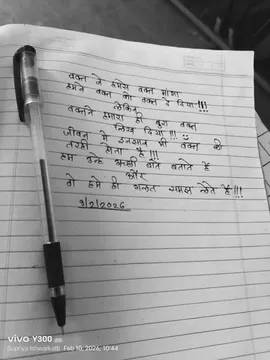 वक्त ने हमसे वक्त मांगा
हमने वक्त को वक्त दे दिया!!!
लेकिन
वक्तने हमारा ही बुरा वक्त
लिख दिया!!!
जीवन मे इनसान भी वक्त की
तरही होता है!!!
हम उन्हे अच्छी बाते बताते है
और
वो हमे ही गलत समझ लेते है!!!
9/2/2026
vivo Y300
Supriya Ishwarkatti Feb 10, 2026, 10:44